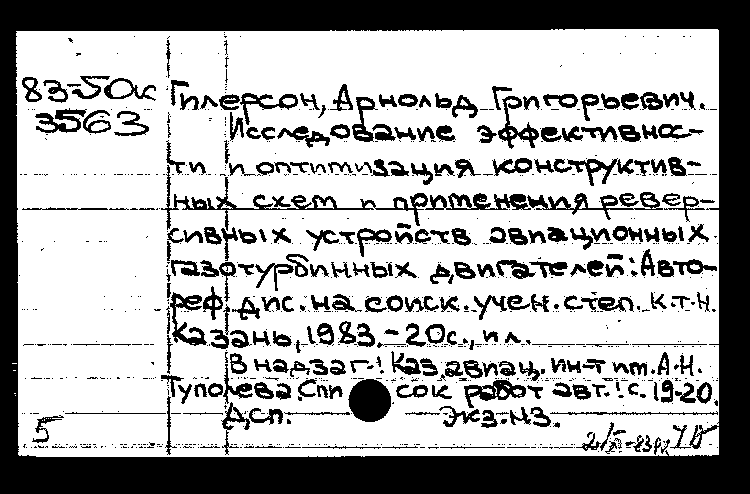 83-50к
3563
Гилерсон, Арнольд Григорьевич.
Исследование эффективнос-
ти и оптимизация конструктив-
ных схем и применения ревер-
сивных устройств авиационных
газотурбинных двигателей: Авто-
реф. дис. на соиск. учен. степ. к.т.н.
Казань, 1983. - 20 с., ил.
В надзаг.: Каз. авиац. ин-т им. А.Н.
Туполева. Список работ авт.: с. 19-20.
Дсп. Экз. №3.
5